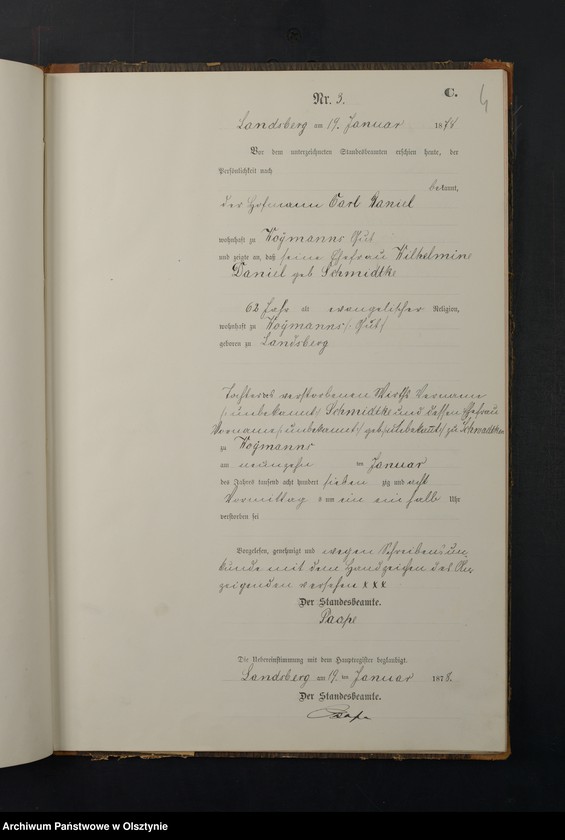 C.
4
Nr. 3.
Landsberg am 19. Januar 1878
Vor dem unterzeichneten Standesbeamten erschien heute, der
Persönlichkeit nach
bekannt,
der Hofmann Carl Daniel
wohnhaft zu Woymanns Gut
und zeigte an, daß seine Ehefrau Wilhelmine
Daniel geb Schmidtke
62 Jahr alt evangelischer Religion,
wohnhaft zu Woymanns /Gut/
geboren zu Landsberg
Tochter des verstorbenen Wirths Vorname
/unbekannt/ Schmidtke und dessen Ehefrau
Vorname /unbekannt/ geb /unbekannt/ zu
zu Woymanns
am neunzehn ten Januar
des Jahres tausend acht hundert sieben zig und acht
Vormittags um ein einhalb Uhr
verstorben sei
Vorgelesen, genehmigt und wegen Schreibensun
kunde mit dem Handzeichen des An
zeigenden versehen xxx
Der Standesbeamte.
Paape
Die Uebereinstimmung mit dem Hauptregister beglaubigt.
Landsberg am 19. ten Januar 1878.
Der Standesbeamte.
Paape
Archiwum Państwowe w Olsztynie